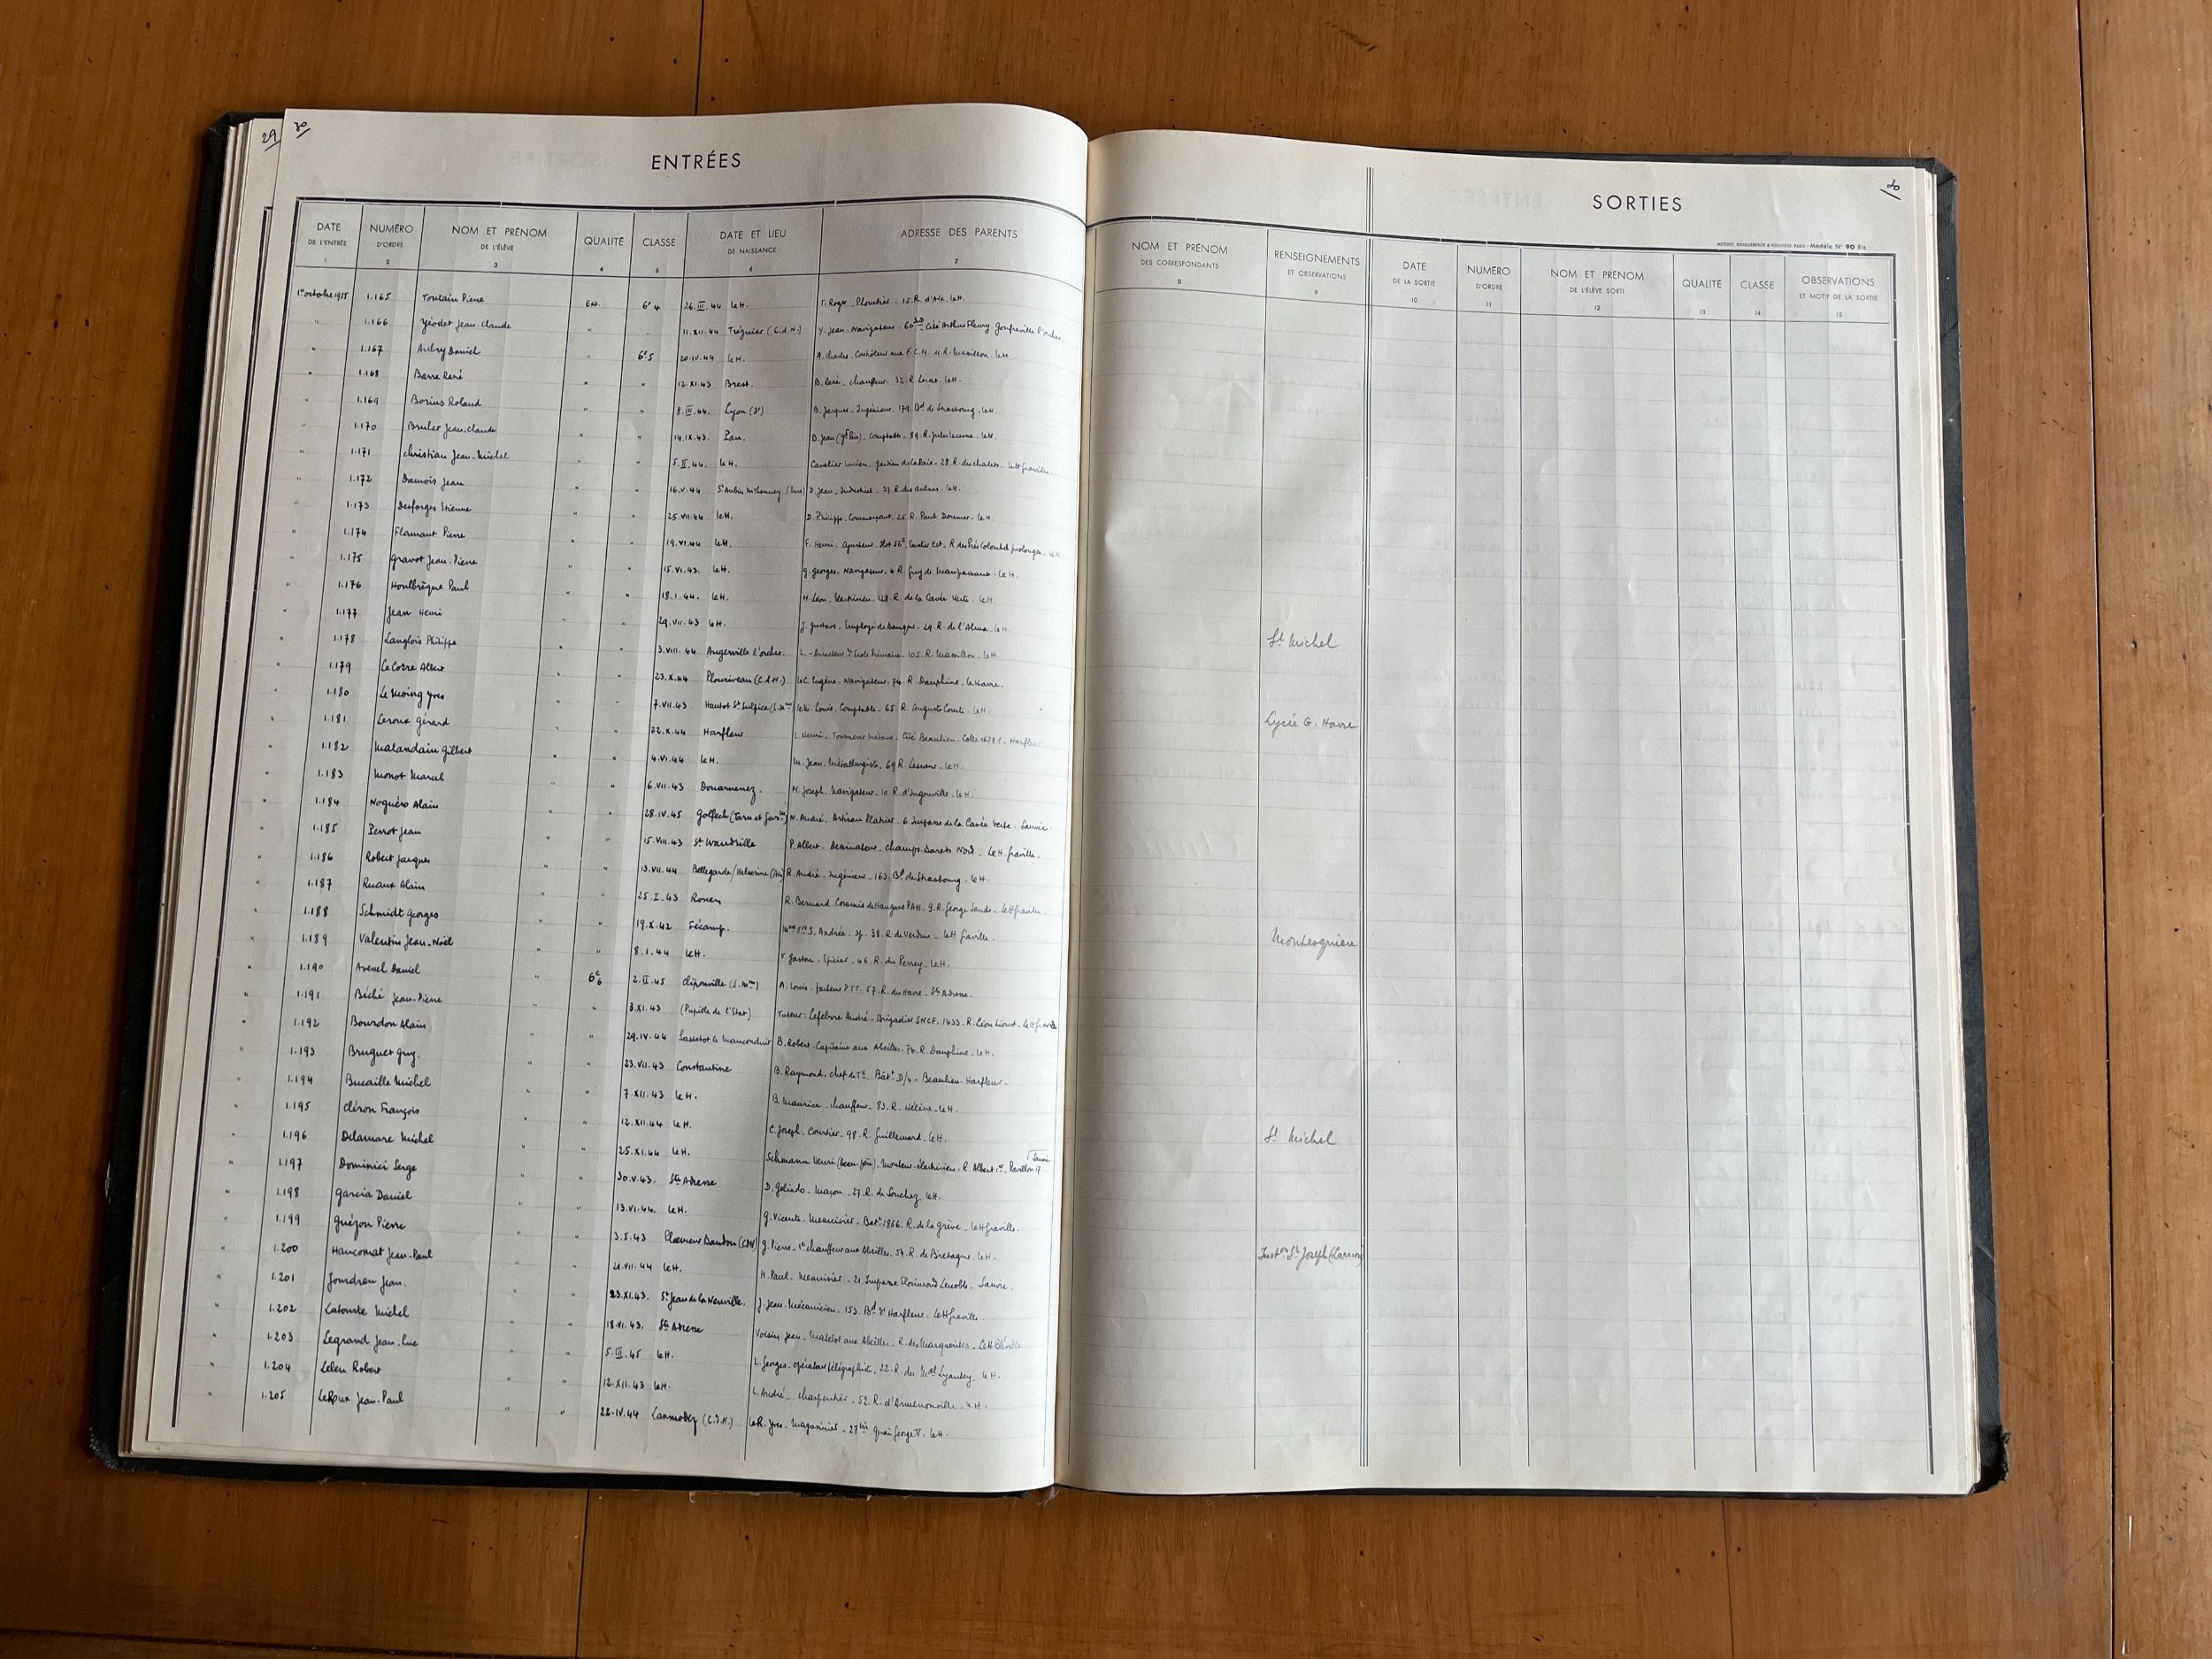 29
30
ENTRÉES
DATE DE L'ENTRÉE 1
NUMÉRO D'ORDRE 2
NOM ET PRÉNOM DE L'ÉLÈVE 3
QUALITÉ 4
CLASSE 5
DATE ET LIEU DE NAISSANCE 6
ADRESSE DES PARENTS 7
1er octobre 1955 1.165 Toutain Pierre Ext. 6e 4 26.III.44 Le H. T. Roger - Plombier - 15.R. d'Aix. Le H.
" 1.166 Yéodet Jean-Claude " " 11.XII.44 Tréguier (C.d.N.) Y. Jean - Navigateur - 60 Cité Arthur Fleury. Gonfreville l'orcher.
" 1.167 Aubry Daniel " 6e5 20.IV.44 Le H. A. Charles - Contrôleur aux E.C.M. 11 R. Massillon. Le H.
" 1.168 Barre René " " 12.XI.43 Brest. B. René - chauffeur. 32.R. Lecat. Le H.
" 1.169 Borius Roland " " 8.III.44. Lyon (3e) B. Jacques - Ingénieur. 179. Bd de Strasbourg. Le H.
" 1.170 Brulet Jean-Claude " " 14.IX.43. Pau. D. Jean - Comptable - 89.R. Jules Lecesne - Le H.
" 1.171 Christian Jean-Michel " " 5.II.44. Le H. Cavelier Lucien - gardien de la Paix - 28.R. des chalets - Le H Graville
" 1.172 Damois Jean " " 16.V.44 St Aubin (Eure) D. Jean - Industriel - 37.R. des aulnes. Le H.
" 1.173 Desforges Etienne " " 25.VII.44 Le H. D. Philippe. Commerçant. 25 R. Paul Doumer - Le H.
" 1.174 Flamant Pierre " " 19.VI.44 Le H. F. Henri - Ajusteur. Ilot 56e, Quartier Est - R. des Prés Colombel prolongée - Le H.
" 1.175 Gravot Jean-Pierre " " 15.VI.43. Le H. G. Georges - Navigateur. 4 R. Guy de Maupassant - Le H.
" 1.176 Houlbrèque Paul " " 18.1.44. Le H. H. Léon - Electricien - 128.R. de la Cavée Verte - Le H.
" 1.177 Jean Henri " " 29.VII.43 Le H. J. Gustave - Employé de Banque - 29.R. de l'Alma - Le H.
" 1.178 Langlois Philippe " " 3.VIII.44 Angerville l'orcher. L. - Directeur d'Ecole Primaire - 105.R. Massillon - Le H.
" 1.179 Le Corre Albert " " 23.X.44 Plouriveau (C.d.N.) Le C. Eugène - Navigateur. 74.R. Dauphine - Le Havre.
" 1.180 Le Moing Yves " " 7.VII.43 Hautot St Sulpice (S.Me) Le M. Louis - Comptable - 65.R. Auguste Comte - Le H.
" 1.181 Leroux Gérard " " 22.X.44 Harfleur L. Henri - Tourneur Métaux - Cité Beaulieu - Harfleur
" 1.182 Malandain Gilbert " " 4.VI.44 Le H. M. Jean. Métallurgiste. 69 R. Lesueur. Le H.
" 1.183 Monot Marcel " " 6.VII.43 Douarnenez. M. Joseph. Navigateur. 10.R. d'Ingouville. Le H.
" 1.184 Noguéro Alain " " 28.IV.45 Golfech (Tarn et Garne) N. André - Artisan Plâtrier - 6 Impasse de la Cavée Verte - Sanvic
" 1.185 Perrot Jean " " 15.VIII.43 St Wandrille P. Albert - Dessinateur - champs Barets Nord - Le H. Graville.
" 1.186 Robert Jacques " " 13.VII.44 Bellegarde/Valserine (Ain) R. André - Ingénieur - 163. Bd de Strasbourg - Le H.
" 1.187 Ruaux Alain " " 25.I.43 Rouen R. Bernard. Commis de Hangars PAH - 9.R. George Sand - Le H Graville.
" 1.188 Schmidt Georges " " 19.X.42 Fécamp. Mme Vve S. Andrée. Sp. 38.R. de Verdun - Le H Graville.
" 1.189 Valentin Jean-Noël " " 8.1.44 Le H. V. Gaston - Epicier - 46.R. du Perrey - Le H.
" 1.190 Avenel Daniel " 6e6 2.II.45 Cliponville (S.Me) A. Louis - facteur PTT. 57.R. du Havre - Ste Adresse.
" 1.191 Béché Jean-Pierre " " 3.XI.43 (Pupille de l'Etat) Tuteur: Lefebvre André. Brigadier SNCF - 1433 - R. Léon Lioust - Le H Graville
" 1.192 Bourdon Alain " " 29.IV.44 Sassetot le Mauconduit B. Robert. Capitaine aux Abeilles. 74.R. Dauphine - Le H.
" 1.193 Bruguet Guy. " " 23.VII.43 Constantine B. Raymond - chef de Tn. Bâtt D/4 - Beaulieu - Harfleur -
" 1.194 Bucaille Michel " " 7.XII.43 Le H. B. Maurice - chauffeur - 83.R. Hélène - Le H.
" 1.195 Cléron François " " 12.XII.44 Le H. C. Joseph - Courtier - 98.R. Guillemard - Le H.
" 1.196 Delamare Michel " " 25.XI.44 Le H. Schmann Henri (beau-père) - Monteur-électricien - R. Albert 1er - Pavillon 17 Sanvic
" 1.197 Dominici Serge " " 30.V.43. Ste Adresse D. Galindo - Maçon - 27.R. de Souchez. Le H.
" 1.198 Garcia Daniel " " 13.VI.44. Le H. G. Vicente - Menuisier - Batt 1866. R. de la Grève - Le H Graville.
" 1.199 Guézou Pierre " " 3.5.43 Ploemeur Baudou (CDN) G. Pierre - 1er chauffeur aux Abeilles. 54.R. de Bretagne - Le H.
" 1.200 Hancomat Jean-Paul " " 21.VII.44 Le H. H. Paul - Menuisier - 21. Impasse Florimond Lenoble - Sanvic.
" 1.201 Jourdren Jean. " " 23.XI.43. St Jean de la Neuville. J. Jean - Mécanicien - 153. Bd d'Harfleur. Le H Graville.
" 1.202 Latouste Michel " " 18.VI.43. Ste Adresse Voisin Jean - Matelot aux Abeilles. R. des Marguerites - Le H Bléville
" 1.203 Legrand Jean-Luc " " 5.III.45 Le H. L. Georges - opérateur télégraphiste, 22.R. du Mal Lyautey. Le H.
" 1.204 Leleu Robert " " 12.XII.43 Le H. L. André - charpentier - 52.R. d'Armenonville - Le H.
" 1.205 LeRoux Jean-Paul " " 22.IV.44 Lanmodez (C.D.N.) Le R. Yves - Magasinier - 27bis Quai George V. Le H.
30
SORTIES
Modèle N° 90 Bis
NOM ET PRÉNOM DES CORRESPONDANTS 8
RENSEIGNEMENTS ET OBSERVATIONS 9
DATE DE LA SORTIE 10
NUMÉRO D'ORDRE 11
NOM ET PRÉNOM DE L'ÉLÈVE SORTI 12
QUALITÉ 13
CLASSE 14
OBSERVATIONS ET MOTIF DE LA SORTIE 15
St Michel
Lycée G. Havre
Montesquieu
St Michel
Instion St Joseph